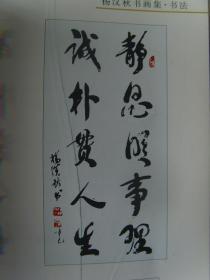 杨汉秋书画集·书法
静思明事理
诚朴贵人生
杨汉秋书